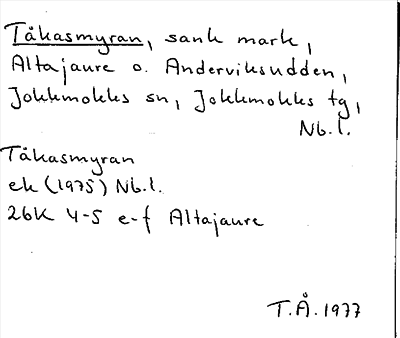 Tåkasmyran, sank mark,
Altajaure o. Anderviksudden,
Jokkmokks sn, Jokkmokks tg,
Nb.l.
Tåkasmyran
ek (1975) Nb.l.
26K 4-5 e-f Altajaure
T.Å. 1977